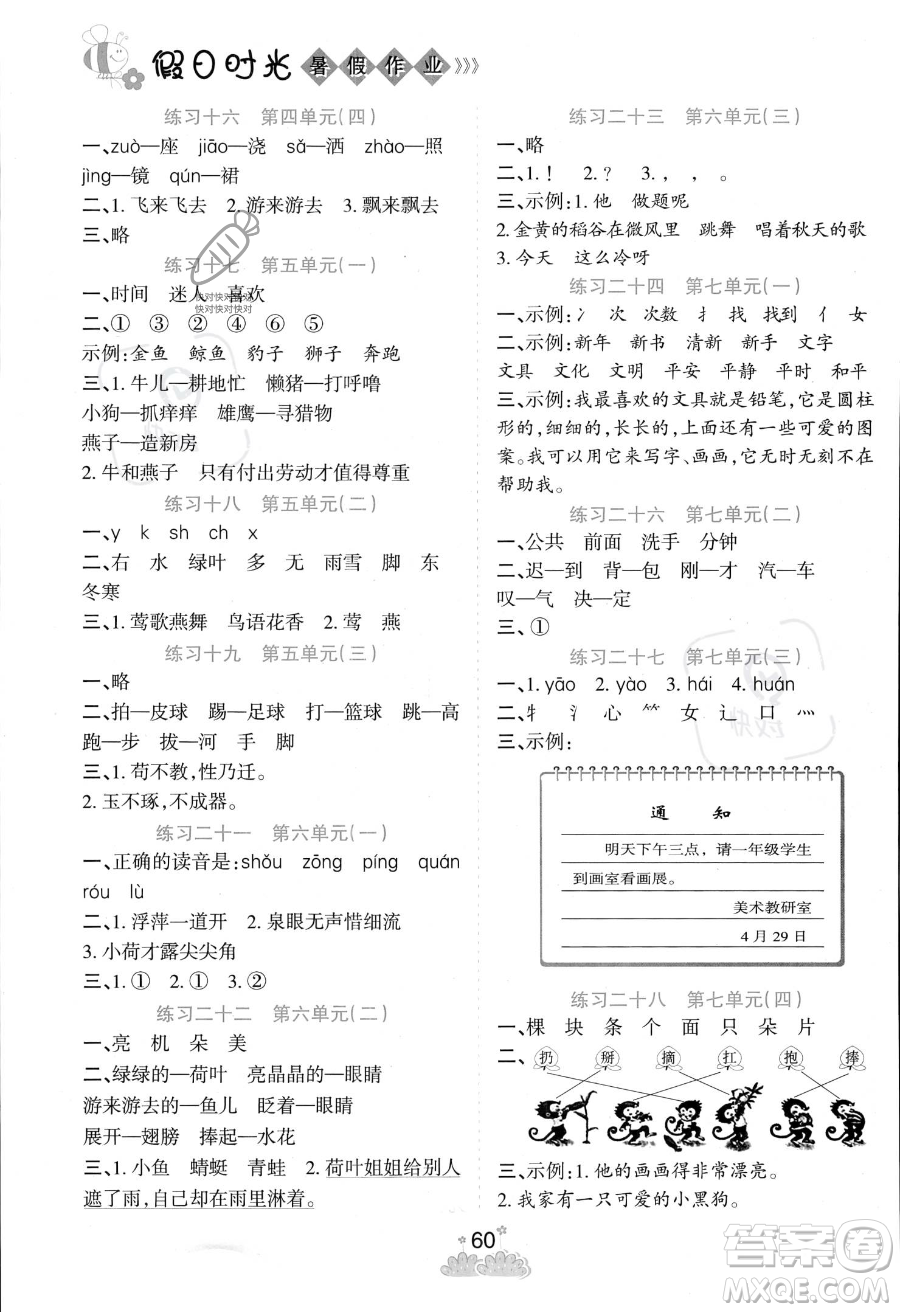 假日时光 暑假作业
练习十六 第四单元(四)
一、zuò—座 jiāo—浇 sǎ—洒 zhào—照
jìng—镜 qún—裙
二、1. 飞来飞去 2. 游来游去 3. 飘来飘去
三、略
练习十七 第五单元(一)
一、时间 迷人 喜欢
快对快对快对
快对快对快对
二、① ③ ② ④ ⑥ ⑤
示例:金鱼 鲸鱼 豹子 狮子 奔跑
三、1. 牛儿—耕地忙 懒猪—打呼噜
小狗—抓痒痒 雄鹰—寻猎物
燕子—造新房
2. 牛和燕子 只有付出劳动才值得尊重
练习十八 第五单元(二)
一、y k sh ch x
二、右 水 绿叶 多 无 雨雪 脚 东
冬寒
三、1. 莺歌燕舞 鸟语花香 2. 莺 燕
练习十九 第五单元(三)
一、略
二、拍—皮球 踢—足球 打—篮球 跳—高
跑—步 拔—河 手 脚
三、1. 苟不教,性乃迁。
2. 玉不琢,不成器。
练习二十一 第六单元(一)
一、正确的读音是:shǒu zōng píng quán
róu lù
二、1. 浮萍一道开 2. 泉眼无声惜细流
3. 小荷才露尖尖角
三、1. ① 2. ① 3. ②
练习二十二 第六单元(二)
一、亮 机 朵 美
二、绿绿的—荷叶 亮晶晶的—眼睛
游来游去的—鱼儿 眨着—眼睛
展开—翅膀 捧起—水花
三、1. 小鱼 蜻蜓 青蛙 2. 荷叶姐姐给别人
遮了雨,自己却在雨里淋着。
练习二十三 第六单元(三)
一、略
二、1. ! 2. ? 3. , , 。
三、示例:1. 他 做题呢
2. 金黄的稻谷在微风里 跳舞 唱着秋天的歌
3. 今天 这么冷呀
练习二十四 第七单元(一)
一、示例:冫 次 次数 扌 找 找到 亻 女
二、示例:新年 新书 清新 新手 文字
文具 文化 文明 平安 平静 平时 和平
三、示例:我最喜欢的文具是铅笔,它是圆柱
形的,细细的,长长的,上面还有一些可爱的图
案。我可以用它来写字、画画,它无时无刻不在
帮助我。
练习二十六 第七单元(二)
一、公共 前面 洗手 分钟
二、迟—到 背—包 刚—才 汽—车
叹—气 决—定
三、①
练习二十七 第七单元(三)
一、1. yāo 2. yào 3. hái 4. huán
二、牜 氵 心 ⺮ 女 辶 口 灬
三、示例:
快对
通 知
明天下午三点，请一年级学生
到画室看画展。
美术教研室
4 月 29 日
练习二十八 第七单元(四)
一、棵 块 条 个 面 只 朵 片
二、扔 掰 摘 扛 抱 捧
三、示例:1. 他的画画得非常漂亮。
2. 我家有一只可爱的小黑狗。
60
答案圈
MXQE.COM